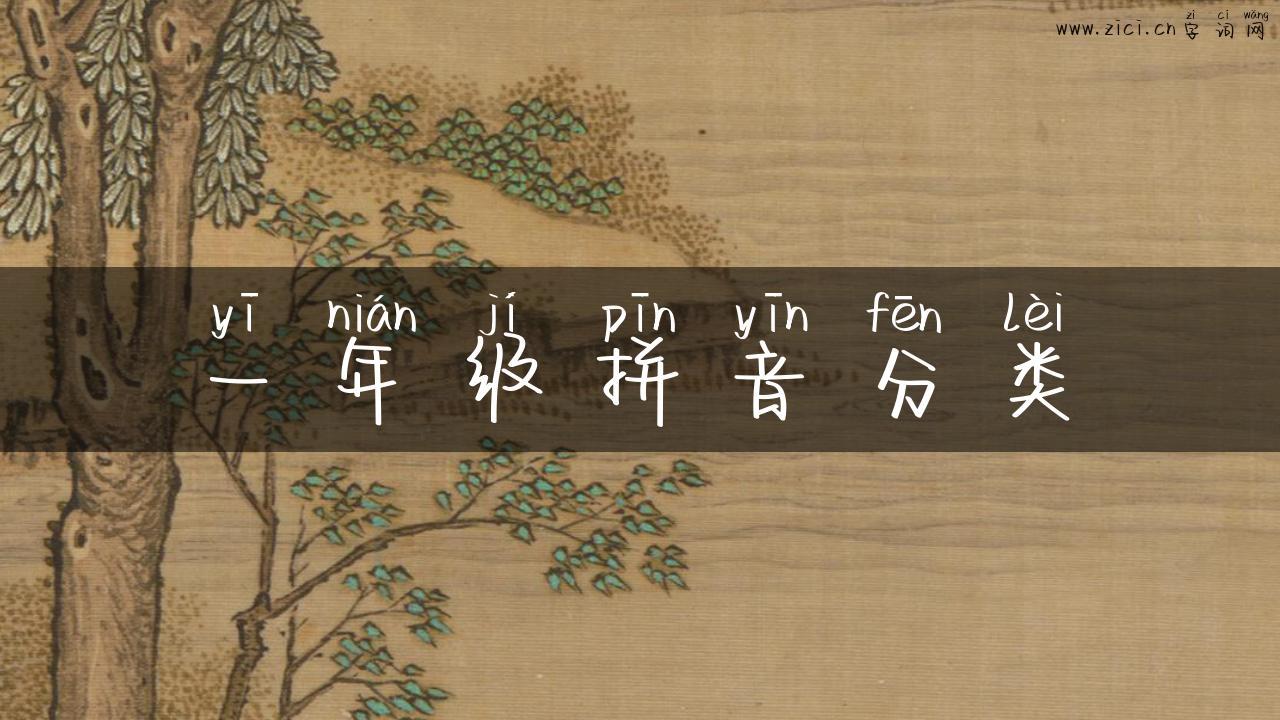 zì cí wǎng
www.zici.cn 字词网
yī nián jí pīn yīn fēn lèi
一年级拼音分类